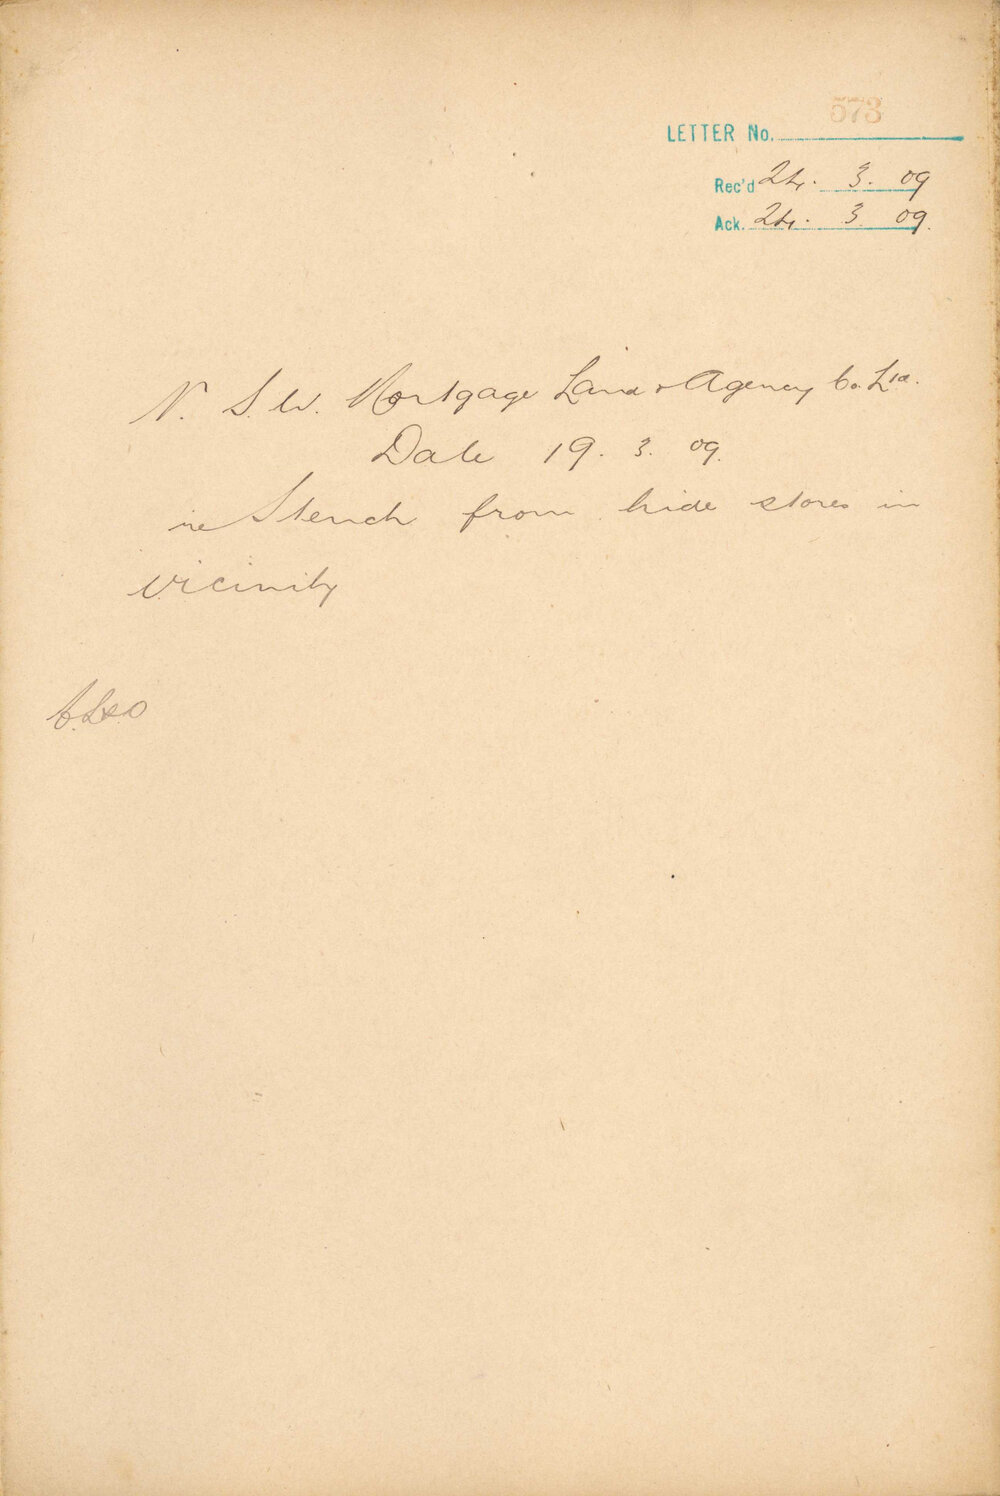 573
LETTER No.
Rec'd 24. 3. 09
Ack. 24. 3 09.
N. S. W. Mortgage Land & Agency Co. Ltd.
Date 19. 3. 09.
re Stench from hide stores in
vicinity